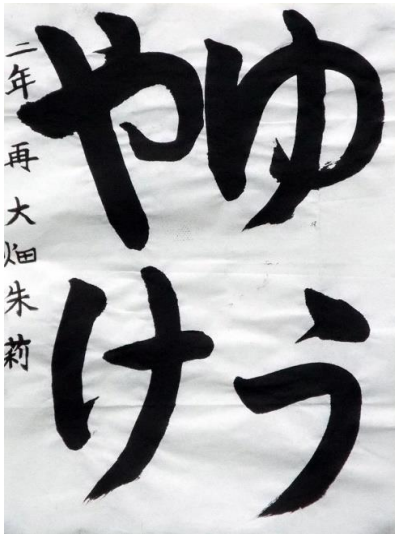 ゆう
やけ
二年 再 大畑朱莉